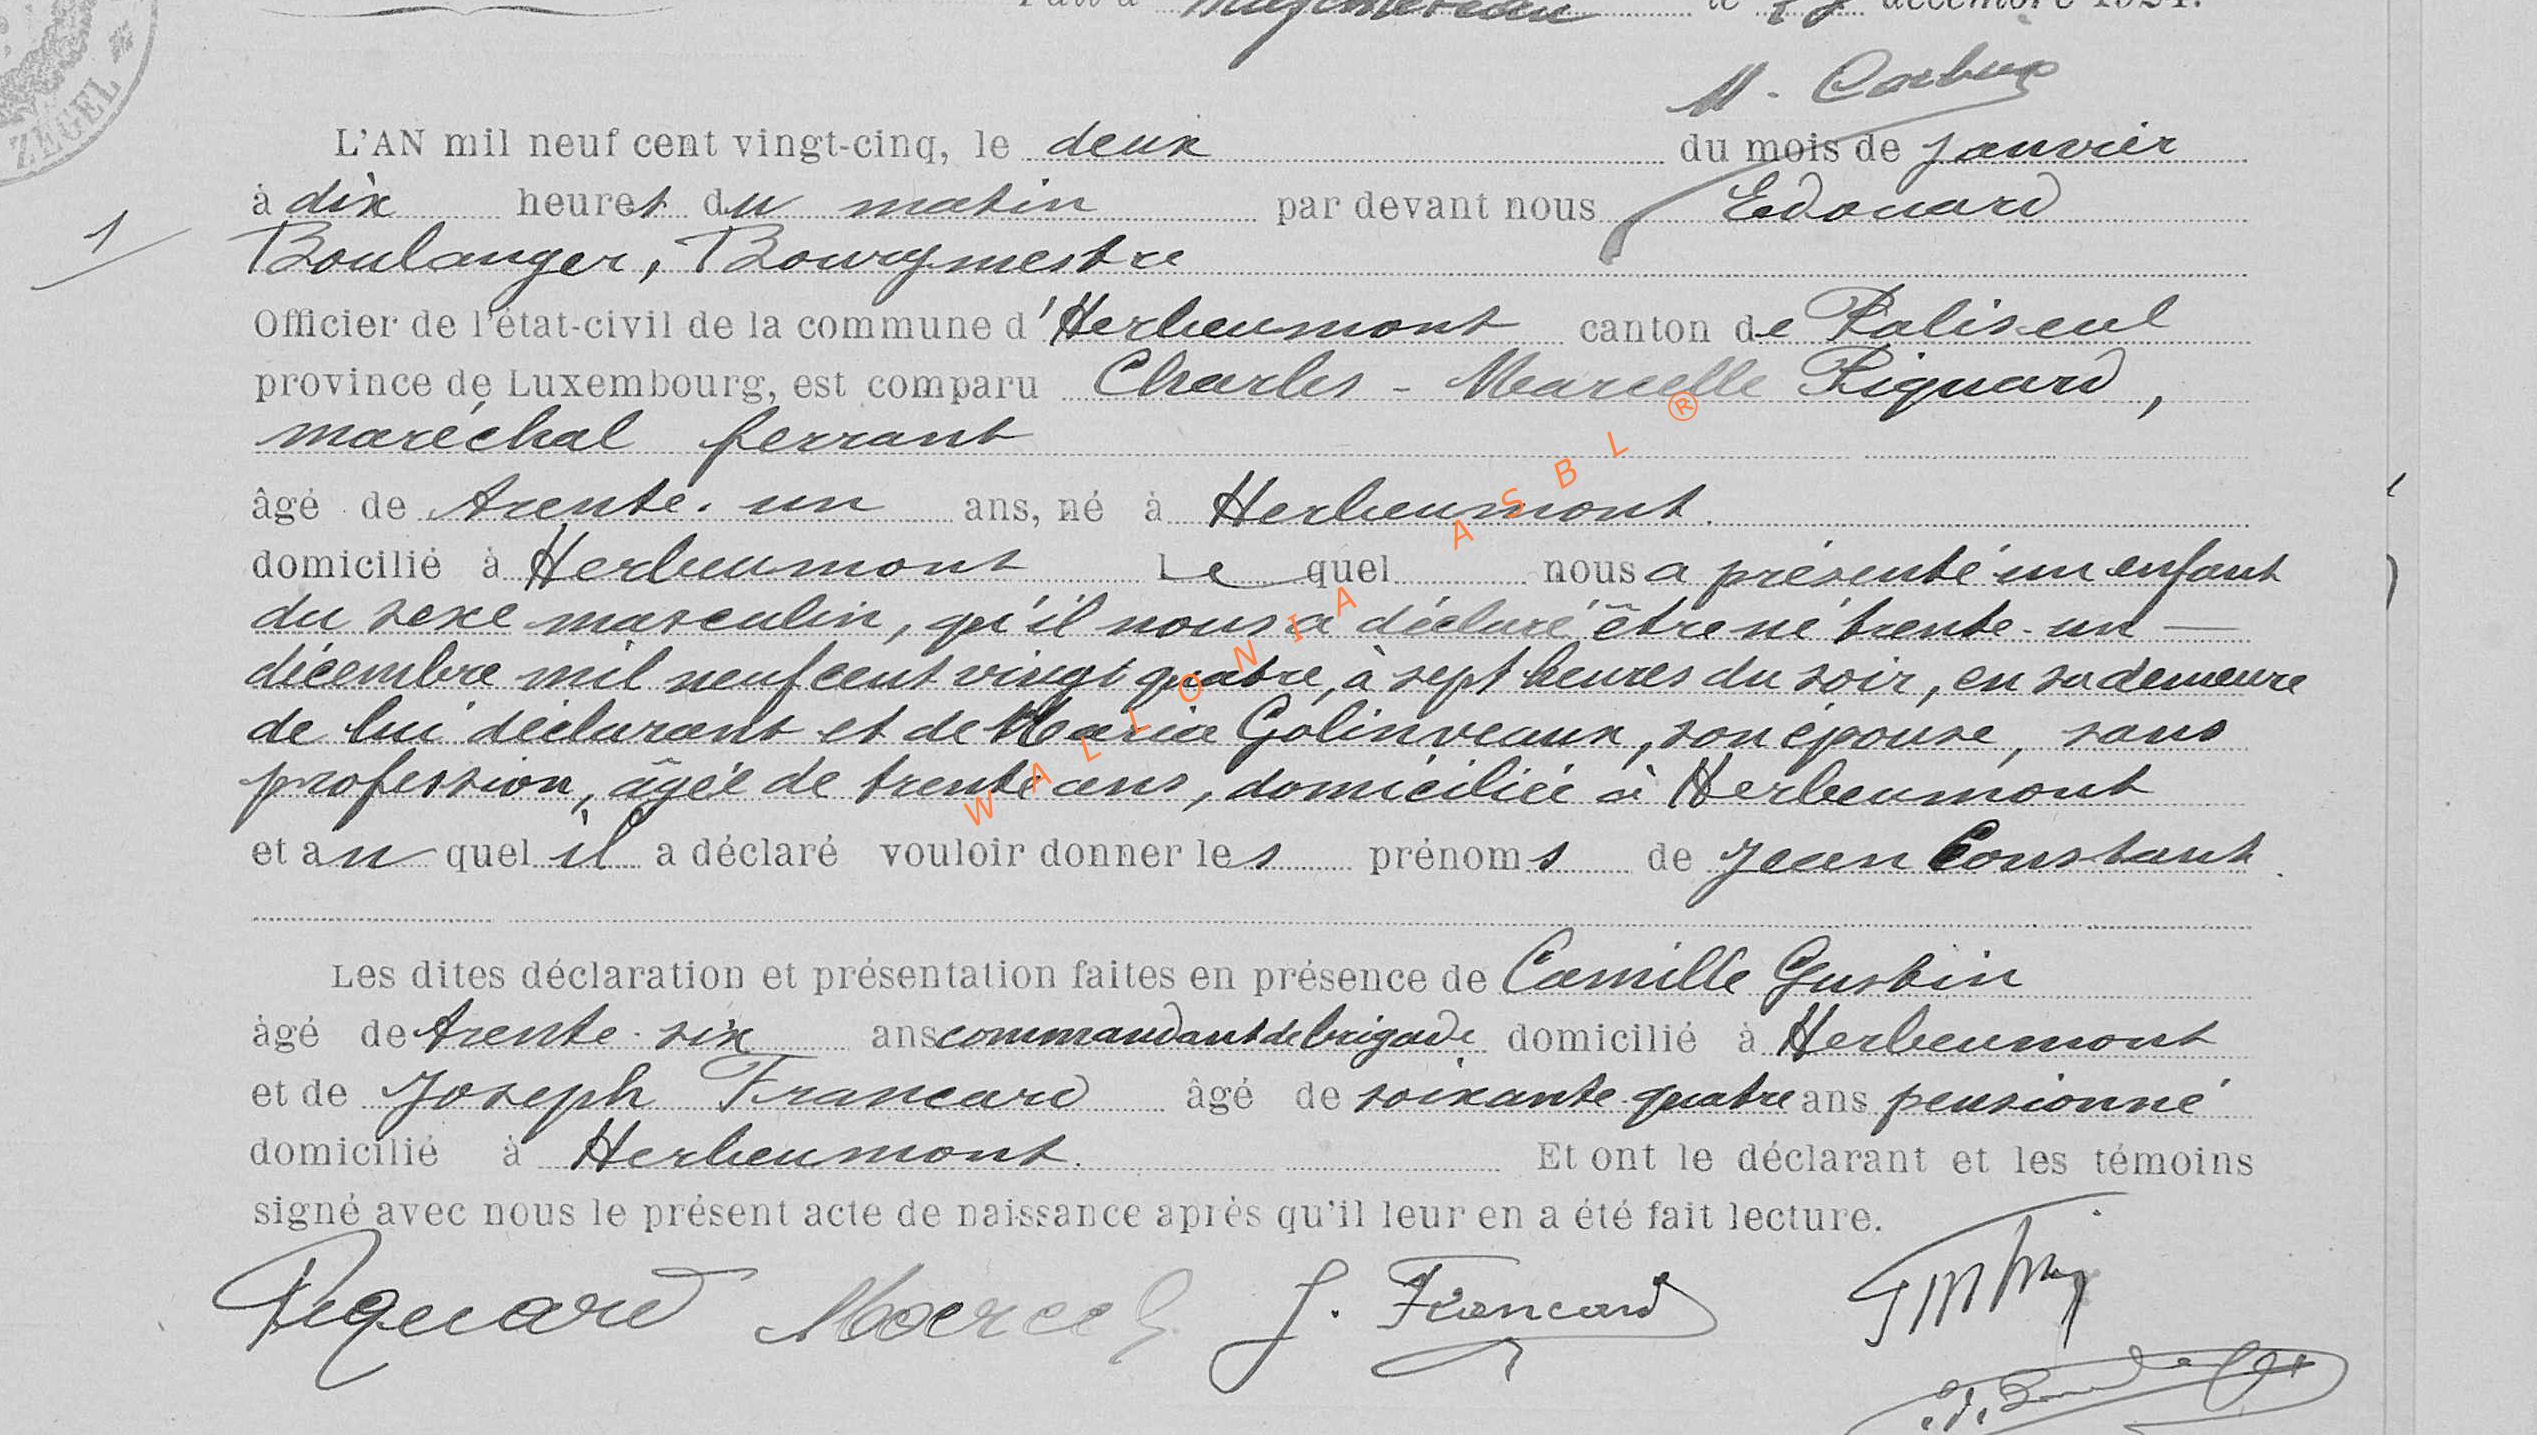 ZEGEL
le décembre 1924.
M.
L'AN mil neuf cent vingt-cinq, le deux du mois de Janvier
à dix heures du matin par devant nous Edouard
1
Boulanger, Bourgmestre
Officier de l'état-civil de la commune d'Herbeumont canton de Paliseul
province de Luxembourg, est comparu Charles - Marcelle Piquard,
maréchal ferrant
âgé de trente-un ans, né à Herbeumont.
domicilié à Herbeumont Le quel nous a présenté un enfant
du sexe masculin, qu'il nous a déclaré être né trente-un —
décembre mil neuf cent vingt quatre, à sept heures du soir, en sa demeure
de lui déclarant et de Maria Golinveaux, son épouse, sans
profession, âgée de trente ans, domiciliée à Herbeumont
et au quel il a déclaré vouloir donner les prénoms de Jean Constant
Les dites déclaration et présentation faites en présence de Camille Gustin
âgé de trente-six ans commandant de brigade domicilié à Herbeumont
et de Joseph Francard âgé de soixante-quatre ans pensionné
domicilié à Herbeumont. Et ont le déclarant et les témoins
signé avec nous le présent acte de naissance après qu'il leur en a été fait lecture.
Piquard Marcel J. Francard Gustin
WALLONIA ASBL ®